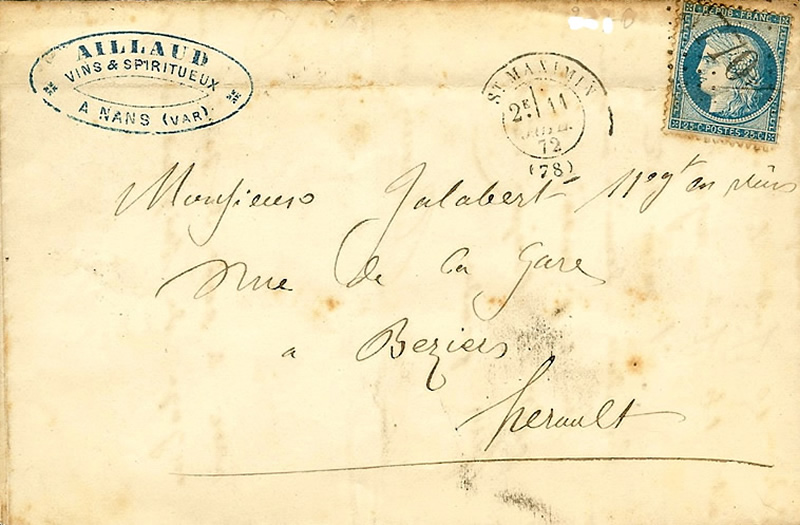 AILLAUD
VINS & SPIRITUEUX
A NANS (VAR)
ST MAXIMIN
2E 11
72
(78)
REPUB. FRANC.
25 C. POSTES 25 C.
Monsieur Jalabert en vins
rue de la Gare
a Beziers
herault